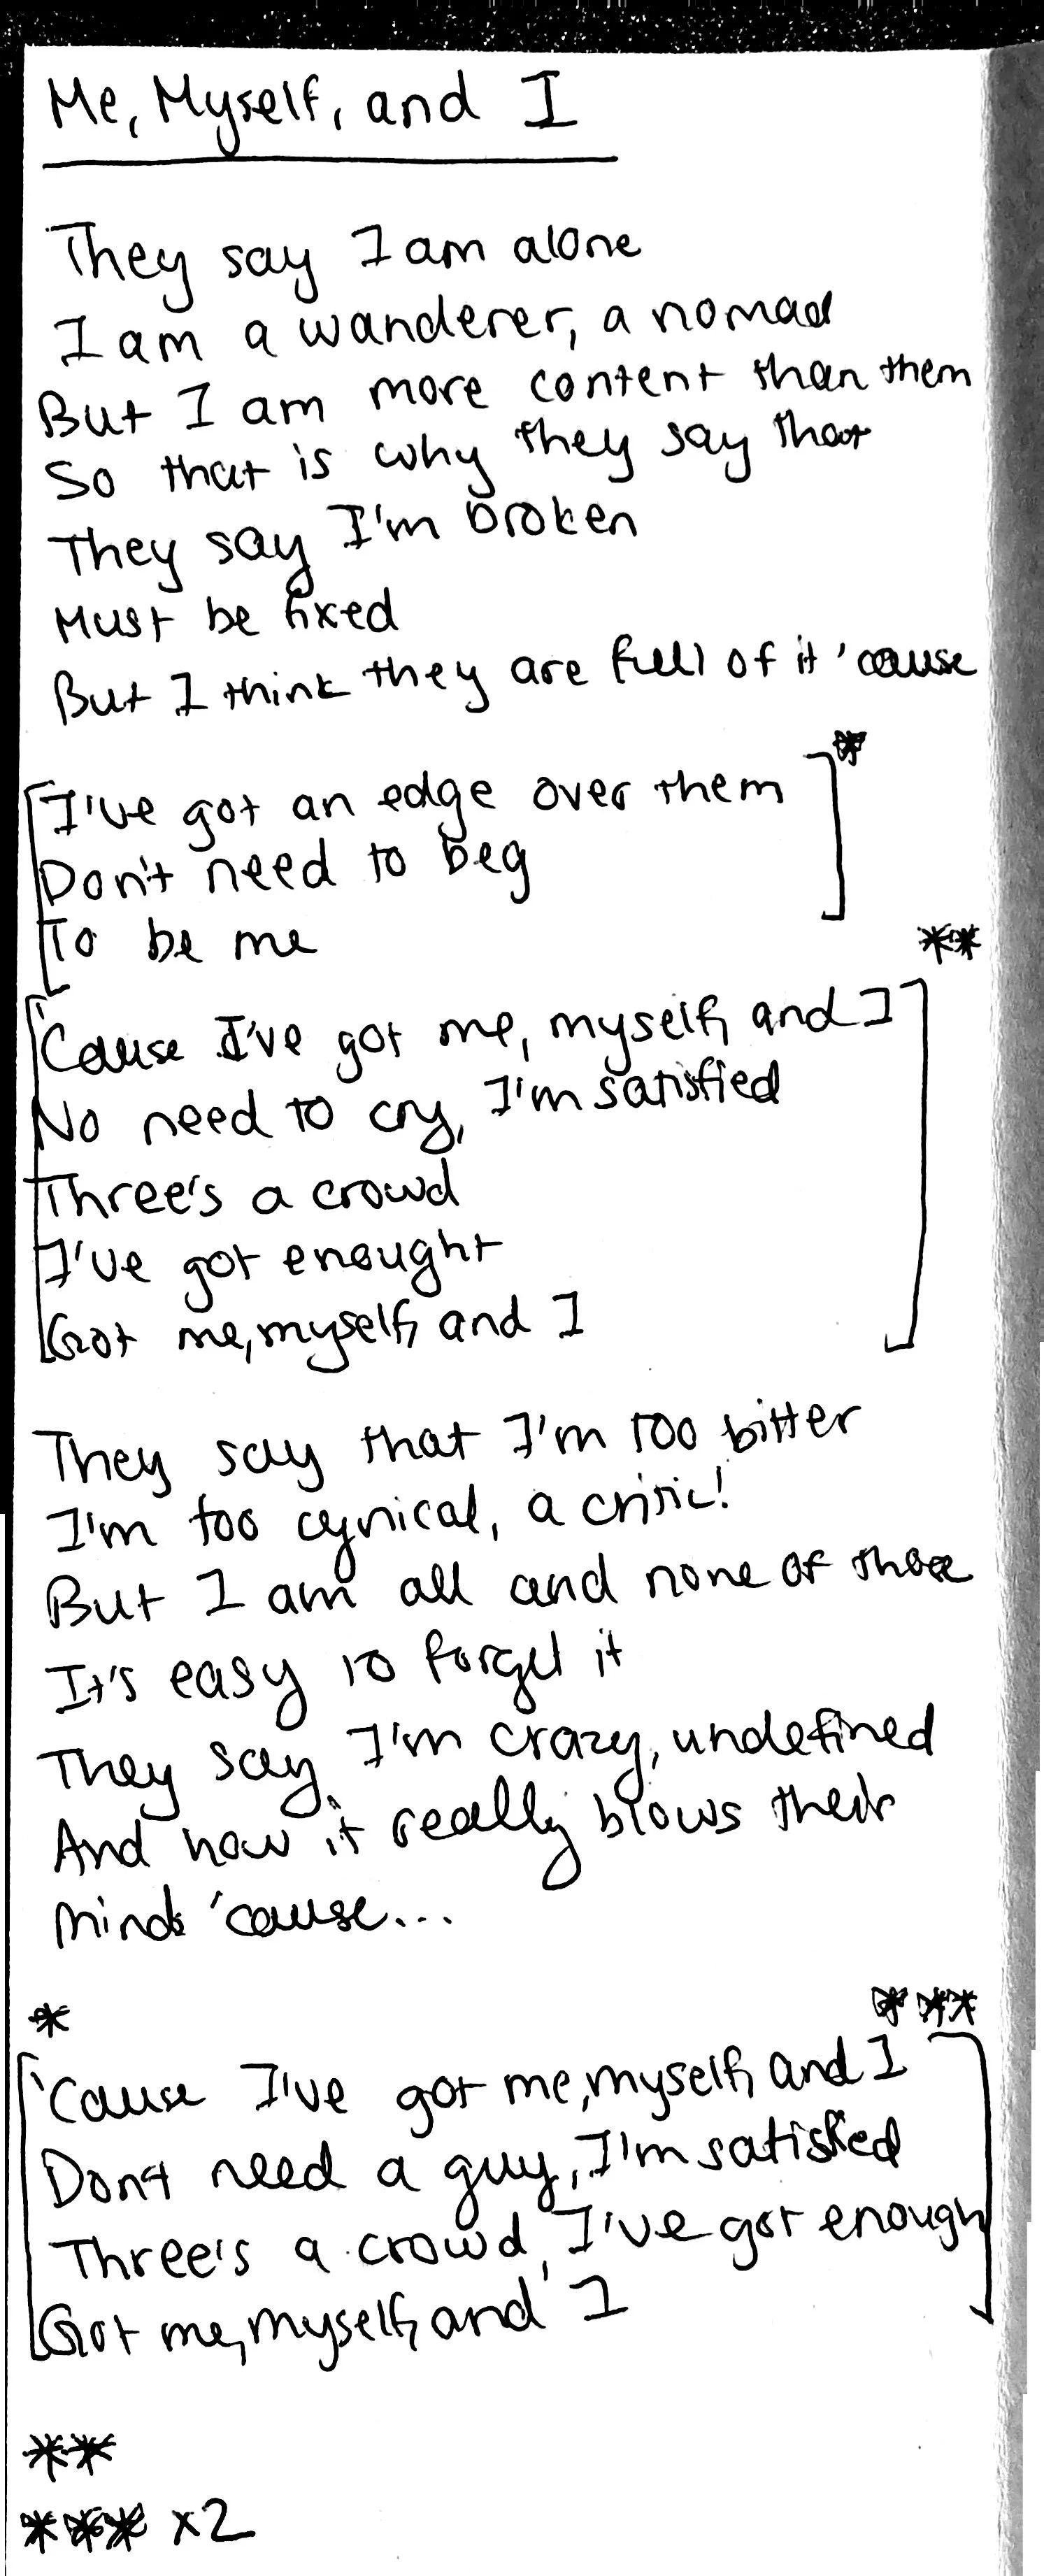 Me, Myself, and I
They say I am alone
I am a wanderer, a nomad
But I am more content than them
So that is why they say that
They say I'm broken
Must be fixed
But I think they are full of it 'cause
*
[I've got an edge over them]
Don't need to beg
To be me
**
['Cause I've got me, myself, and I]
No need to cry, I'm satisfied
Three's a crowd
I've got enought
Got me, myself, and I
They say that I'm too bitter
I'm too cynical, a critic!
But I am all and none of those
It's easy to forget it
They say I'm crazy, undefined
And how it really blows their
minds 'cause...
*
***
['Cause I've got me, myself, and I]
Don't need a guy, I'm satisfied
Three's a crowd, I've got enough
Got me, myself, and I
**
*** x2